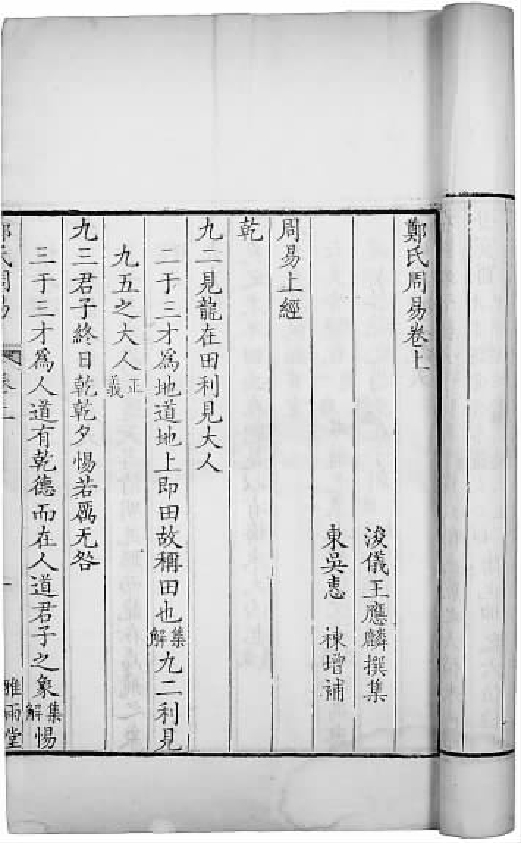 鄭氏周易卷上
浚儀王應麟撰集
東吳惠　棟增補
周易上經
乾
九二見龍在田利見大人
二于三才爲地道地上即田故稱田也集解九二利見
九五之大人正義
九三君子終日乾乾夕惕若厲无咎
三于三才爲人道有乾德而在人道君子之象集解惕
鄭氏周易
雅雨堂